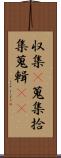 収集 蒐集拾
集蒐輯